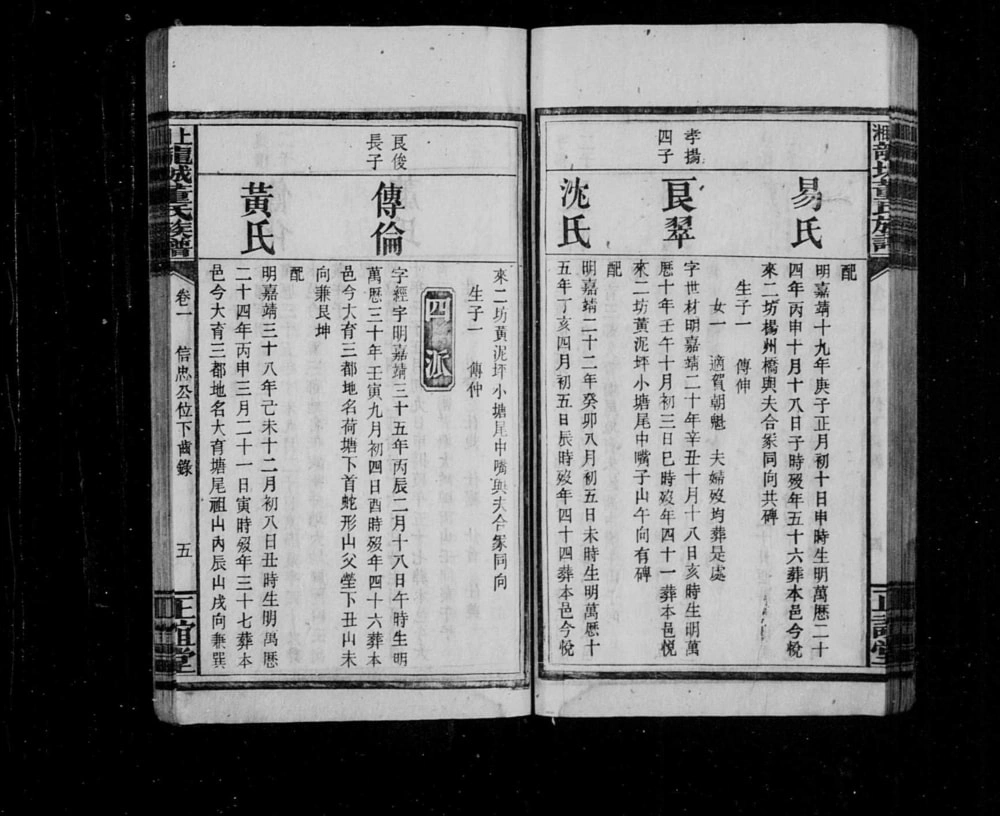 易氏
配
明嘉靖十九年庚子正月初十日申時生明萬歷二十
四年丙申十月十八日子時歿年五十六葬本邑今稅
來二坊楊州橋與夫合冢同向共碑
生子一 傳伸
女一 適賀朝魁 夫婦歿均葬是處
孝揚
四子
艮翠
字世材明嘉靖二十年辛丑十月十八日亥時生明萬
歷十年壬午十月初三日巳時歿年四十一葬本邑悅
來二坊黃泥坪小塘尾中嘴子山午向有碑
沈氏
配
明嘉靖二十二年癸卯八月初五日未時生明萬歷十
五年丁亥四月初五日辰時歿年四十四葬本邑今悅
來二坊黃泥坪小塘尾中嘴與夫合冢同向
生子一 傳仲
四派
艮俊
長子
傳倫
字經宇明嘉靖三十五年丙辰二月十八日午時生明
萬歷三十年壬寅九月初四日酉時歿年四十六葬本
邑今大育三都地名荷塘下首蛇形山父塋下丑山未
向兼艮坤
黃氏
配
明嘉靖三十八年己未十二月初八日丑時生明萬歷
二十四年丙申三月二十一日寅時歿年三十七葬本
邑今大育三都地名大育塘尾祖山內辰山戌向兼巽
上龍城董氏族譜
卷一 信忠公位下齒錄 五
正誼堂